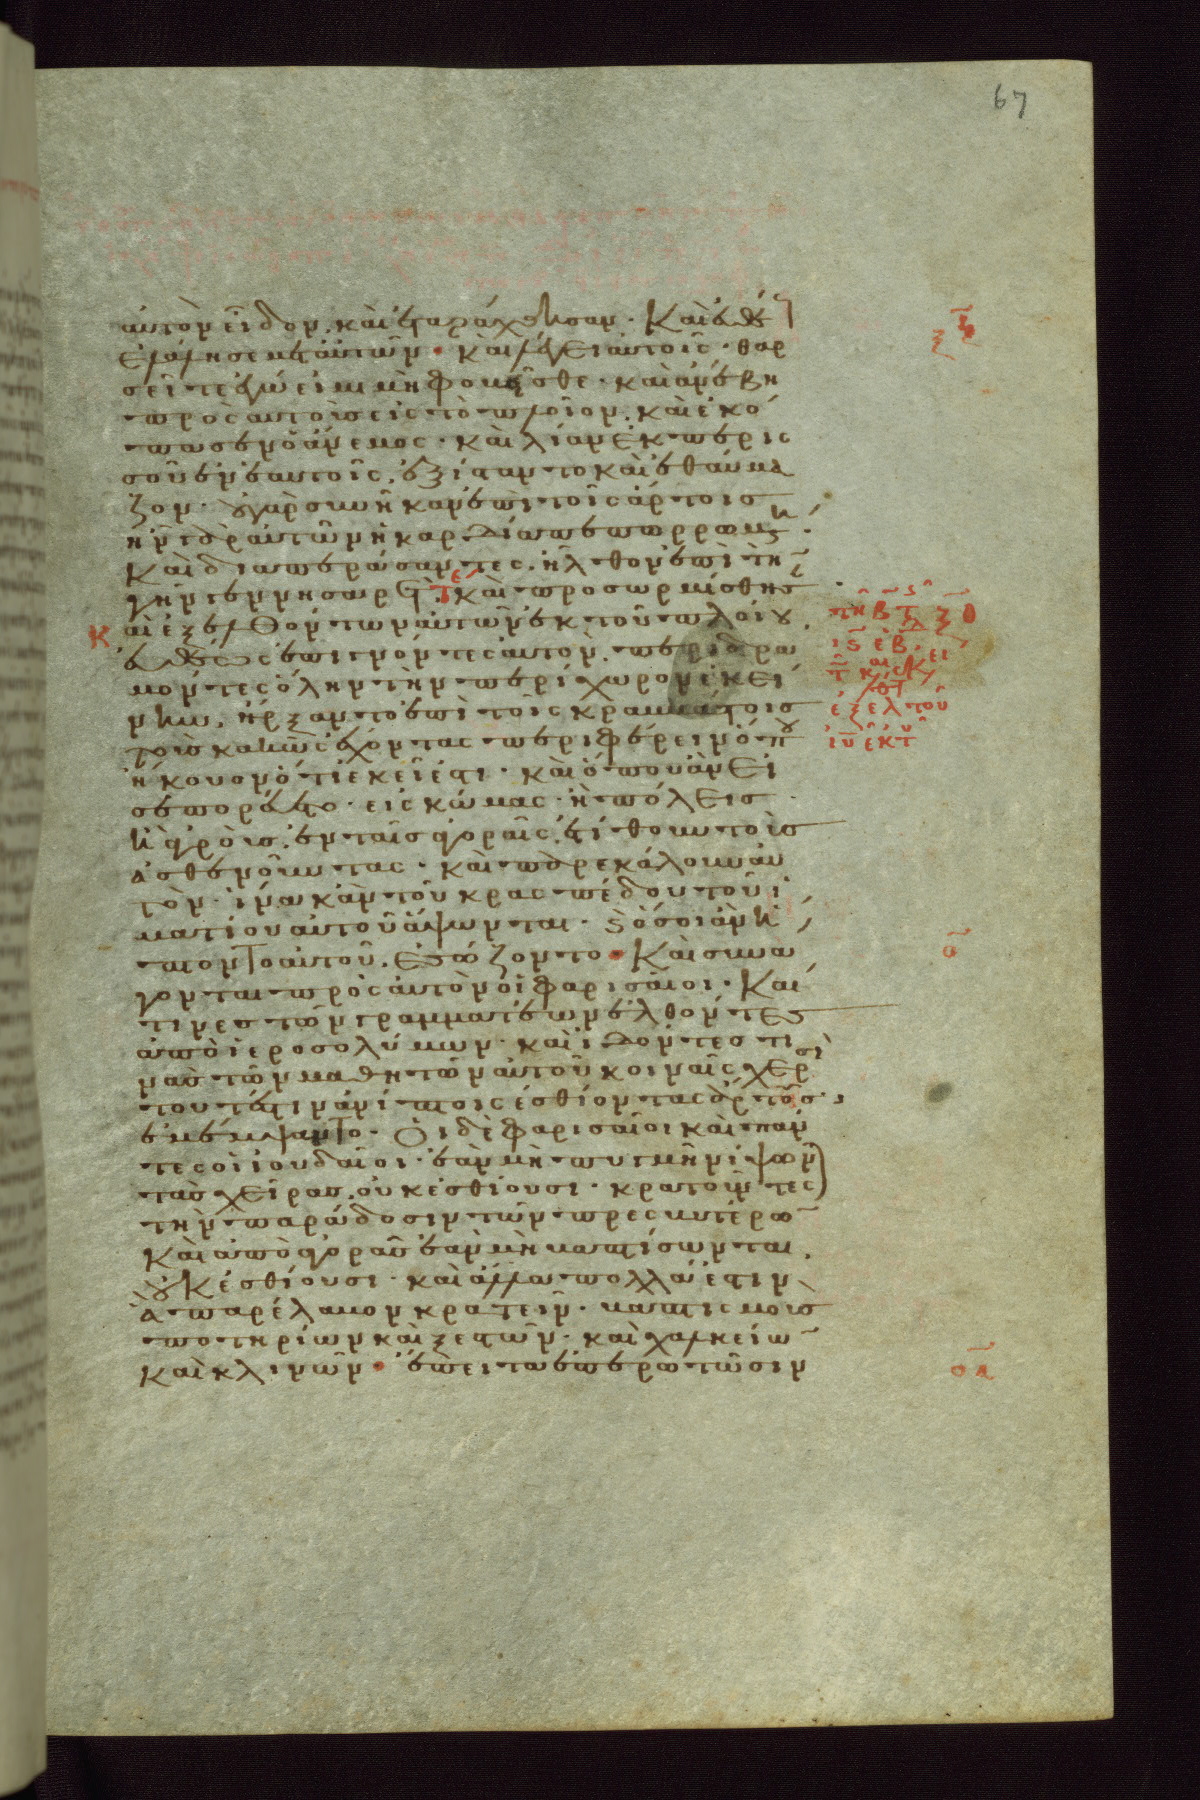 67
αὐτὸν εἶδον, καὶ ἐταράχθησαν · Καὶ εὐθέ
ἐλάλησε μετ' αὐτῶν · καὶ λέγει αὐτοῖς · θαρ
σεῖτε ἐγώ εἰμι μὴ φοβεῖσθε · καὶ ἀνέβη
πρὸς αὐτοὺς εἰς τὸ πλοῖον, καὶ ἐκό
πασεν ὁ ἄνεμος · καὶ λίαν ἐκ περισ
σοῦ ἐν ἑαυτοῖς, ἐξίσταντο καὶ ἐθαύμα
ζον · οὐ γὰρ συνῆκαν ἐπὶ τοῖς ἄρτοις
ἦν γὰρ αὐτῶν ἡ καρδία πεπωρωμένη ·
Καὶ διαπεράσαντες, ἦλθον ἐπὶ τὴν
γῆν γεννησαρέτ καὶ προσωρμίσθησ
Καὶ ἐξελθόντων αὐτῶν ἐκ τοῦ πλοίου
εὐθέως ἐπιγνόντες αὐτόν, περιδρα
μόντες ὅλην τὴν περίχωρον ἐκεί
νην, ἤρξαντο ἐπὶ τοῖς κραββάτοις
τοὺς κακῶς ἔχοντας περιφέρειν ὅπου
ἤκουον ὅτι ἐκεῖ ἐστι · καὶ ὅπου ἂν εἰ
σεπορεύετο · εἰς κώμας · ἢ πόλεις
ἢ ἀγρούς, ἐν ταῖς ἀγοραῖς, ἐτίθουν τοὺς
ἀσθενοῦντας · καὶ παρεκάλουν αὐ
τὸν · ἵνα κἂν τοῦ κρασπέδου τοῦ ἱ
ματίου αὐτοῦ ἅψωνται · καὶ ὅσοι ἂν ἥ
πτοντο αὐτοῦ, ἐσώζοντο · Καὶ συνά
γονται πρὸς αὐτὸν οἱ φαρισαῖοι · Καί
τινες τῶν γραμματέων ἐλθόντες
ἀπὸ ἱεροσολύμων · καὶ ἰδόντες τι
νας τῶν μαθητῶν αὐτοῦ κοιναῖς χερσὶ
τουτέστιν ἀνίπτοις ἐσθίοντας ἄρτους ·
ἐμέμψαντο · Οἱ δὲ φαρισαῖοι καὶ πάν
τες οἱ ἰουδαῖοι · ἐὰν μὴ πυγμῇ νίψων
τας χεῖρας, οὐκ ἐσθίουσι · κρατοῦντες
τὴν παράδοσιν τῶν πρεσβυτέρων
καὶ ἀπὸ ἀγορᾶς ἐὰν μὴ βαπτίσωνται,
οὐκ ἐσθίουσι · καὶ ἄλλα πολλά ἐστιν
ἃ παρέλαβον κρατεῖν · βαπτισμοὺς
ποτηρίων καὶ ξεστῶν · καὶ χαλκείων
καὶ κλινῶν · ἔπειτα ἐπερωτῶσιν
ξη
ξθ
ο
οα